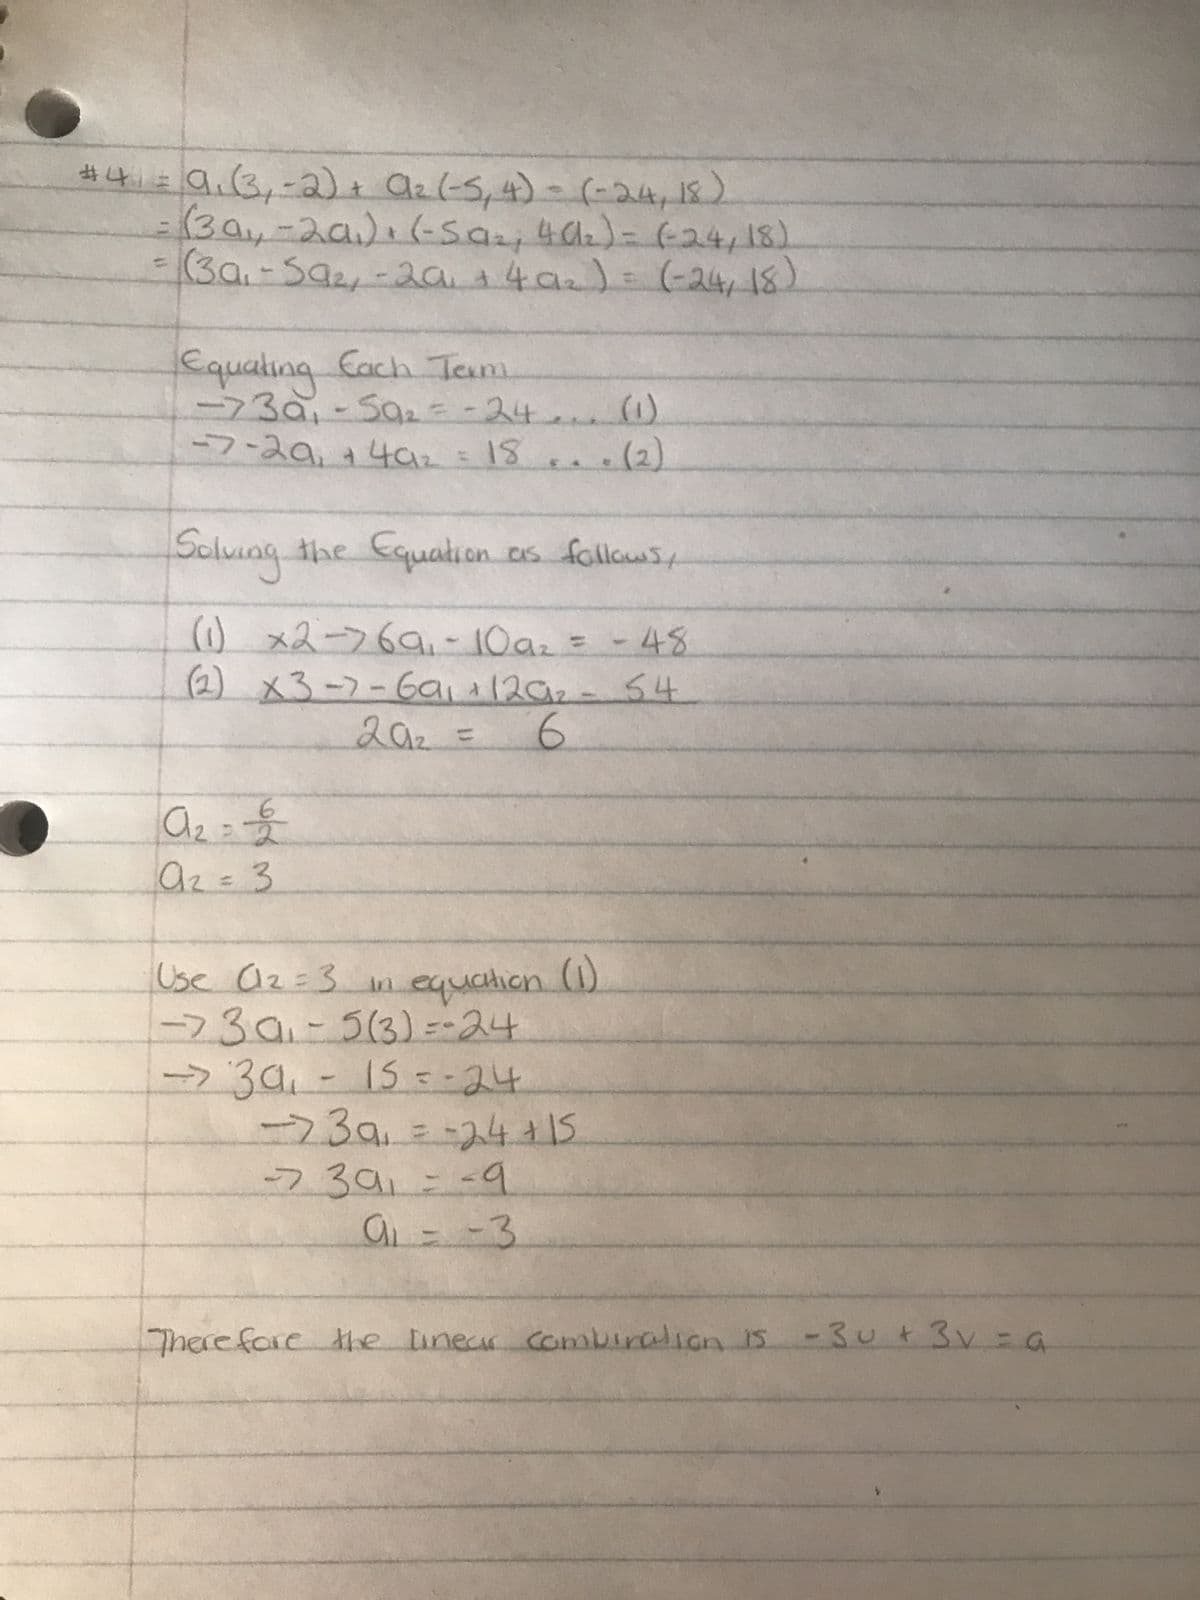 #4 = a₁(3,-2) + a₂(-5,4) = (-24, 18)
= (3a₁, -2a₁) + (-5a₂, 4a₂) = (-24, 18)
= (3a₁ - 5a₂, -2a₁ + 4a₂) = (-24, 18)
Equating Each Term
-> 3a₁ - 5a₂ = -24 ... (1)
-> -2a₁ + 4a₂ = 18 ... (2)
Solving the Equation as follows,
(1) x2 -> 6a₁ - 10a₂ = -48
(2) x3 -> -6a₁ + 12a₂ = 54
2a₂ = 6
a₂ = 6/2
a₂ = 3
Use a₂ = 3 in equation (1)
-> 3a₁ - 5(3) = -24
-> 3a₁ - 15 = -24
-> 3a₁ = -24 + 15
-> 3a₁ = -9
a₁ = -3
Therefore the linear combination is -3u + 3v = a